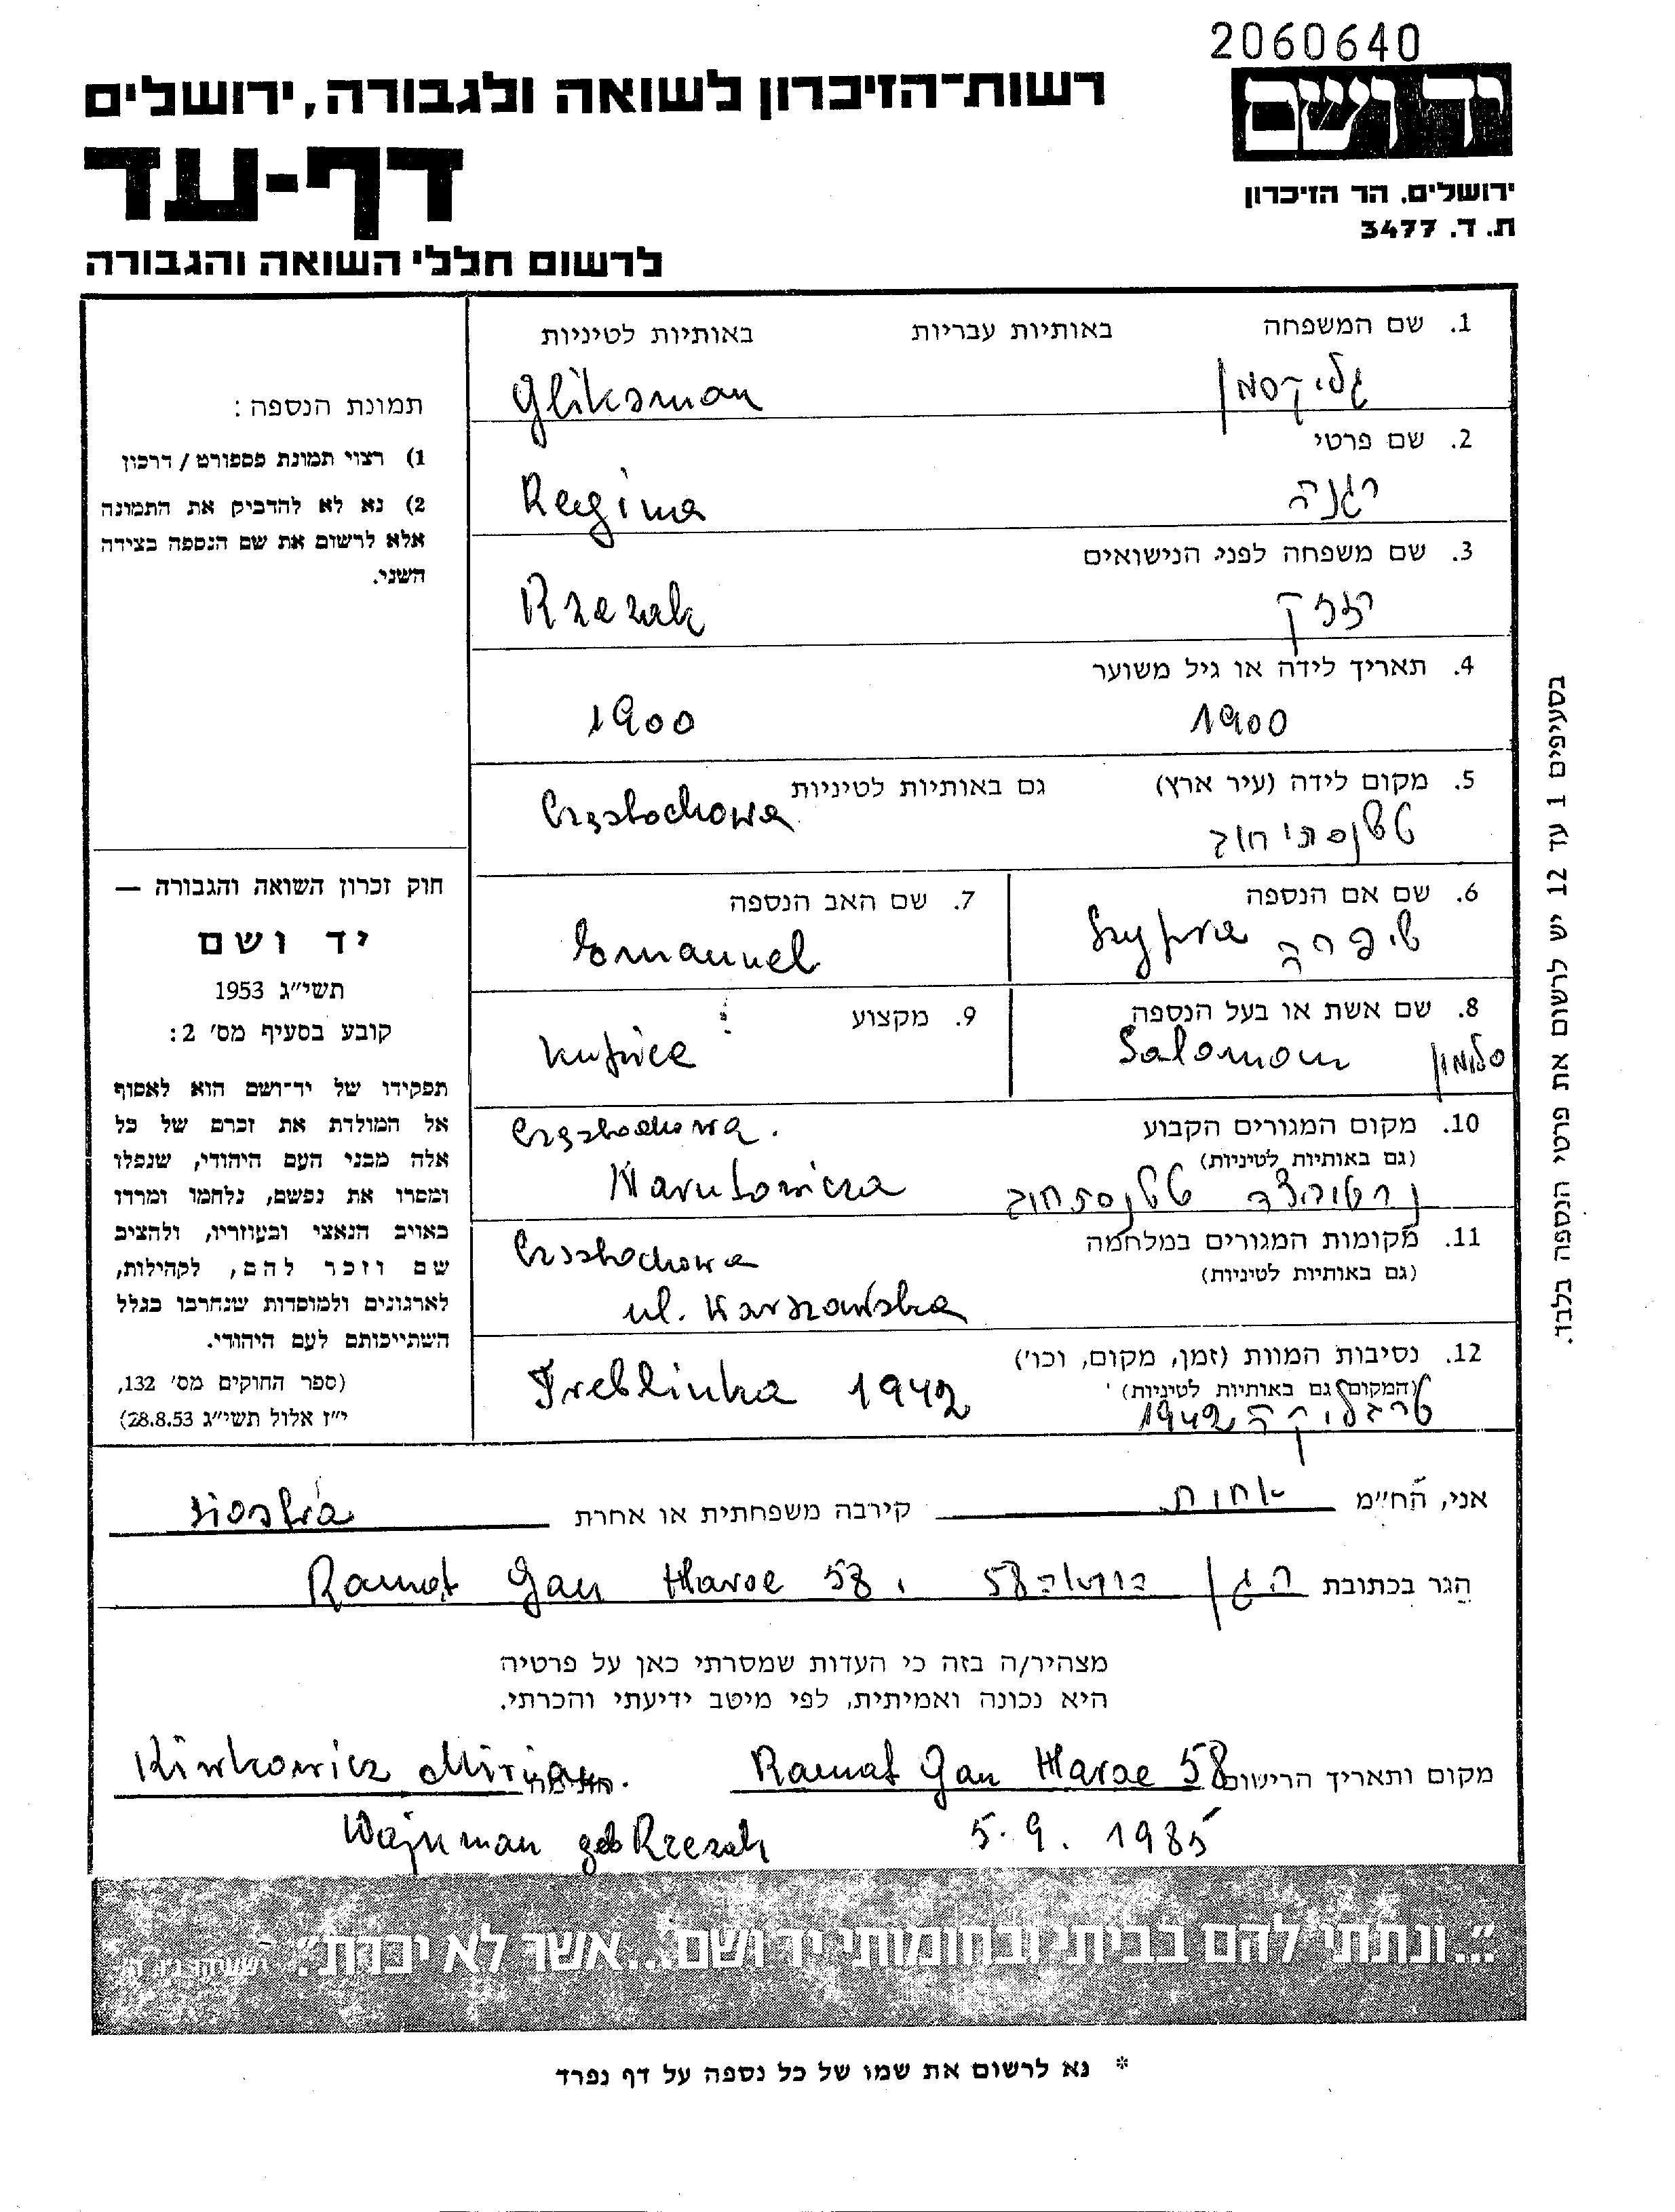 2060640
יד ושם
רשות־הזיכרון לשואה ולגבורה, ירושלים
דף-עד
ירושלים, הר הזיכרון
ת. ד. 3477
לרשום חללי השואה והגבורה
1. שם המשפחה באותיות עבריות באותיות לטיניות
גליקסמן Gliksman
2. שם פרטי
רגינה Regina
3. שם משפחה לפני הנישואים
Rzezak
4. תאריך לידה או גיל משוער
1900 1900
5. מקום לידה (עיר ארץ) גם באותיות לטיניות
Częstochowa
6. שם אם הנספה
Szyfra שיפרה
7. שם האב הנספה
Emanuel
8. שם אשת או בעל הנספה
סלומון Salomon
9. מקצוע
kupiec
10. מקום המגורים הקבוע
(גם באותיות לטיניות)
Częstochowa.
Narutowicza
11. מקומות המגורים במלחמה
(גם באותיות לטיניות)
Częstochowa
ul. Warszawska
12. נסיבות המוות (זמן, מקום, וכו')
(המקום גם באותיות לטיניות)
Treblinka 1942
1942
תמונת הנספה:
1) רצוי תמונת פספורט / דרכון
2) נא לא להדביק את התמונה
אלא לרשום את שם הנספה בצידה
השני.
חוק זכרון השואה והגבורה —
יד ושם
תשי"ג 1953
קובע בסעיף מס' 2:
תפקידו של יד־ושם הוא לאסוף
אל המולדת את זכרם של כל
אלה מבני העם היהודי, שנפלו
ומסרו את נפשם, נלחמו ומרדו
באויב הנאצי ובעוזריו, ולהציב
שם וזכר להם, לקהילות,
לארגונים ולמוסדות שנחרבו בגלל
השתייכותם לעם היהודי.
(ספר החוקים מס' 132,
י"ז אלול תשי"ג 28.8.53)
בסעיפים 1 עד 12 יש לרשום את פרטי הנספה בלבד.
אני, הח"מ אחות קירבה משפחתית או אחרת siostra
הגר בכתובת Ramat Gan Haroe 58, 58
מצהיר/ה בזה כי העדות שמסרתי כאן על פרטיה
היא נכונה ואמיתית, לפי מיטב ידיעתי והכרתי.
מקום ותאריך הרישום Ramat Gan Haroe 58 Kirkowicz Miriam
5.9.1985 Wajnman geb Rzezak
"...ונתתי להם בביתי ובחומותי יד ושם...אשר לא יכרת" ישעיהו נ"ו, ה'
* נא לרשום את שמו של כל נספה על דף נפרד